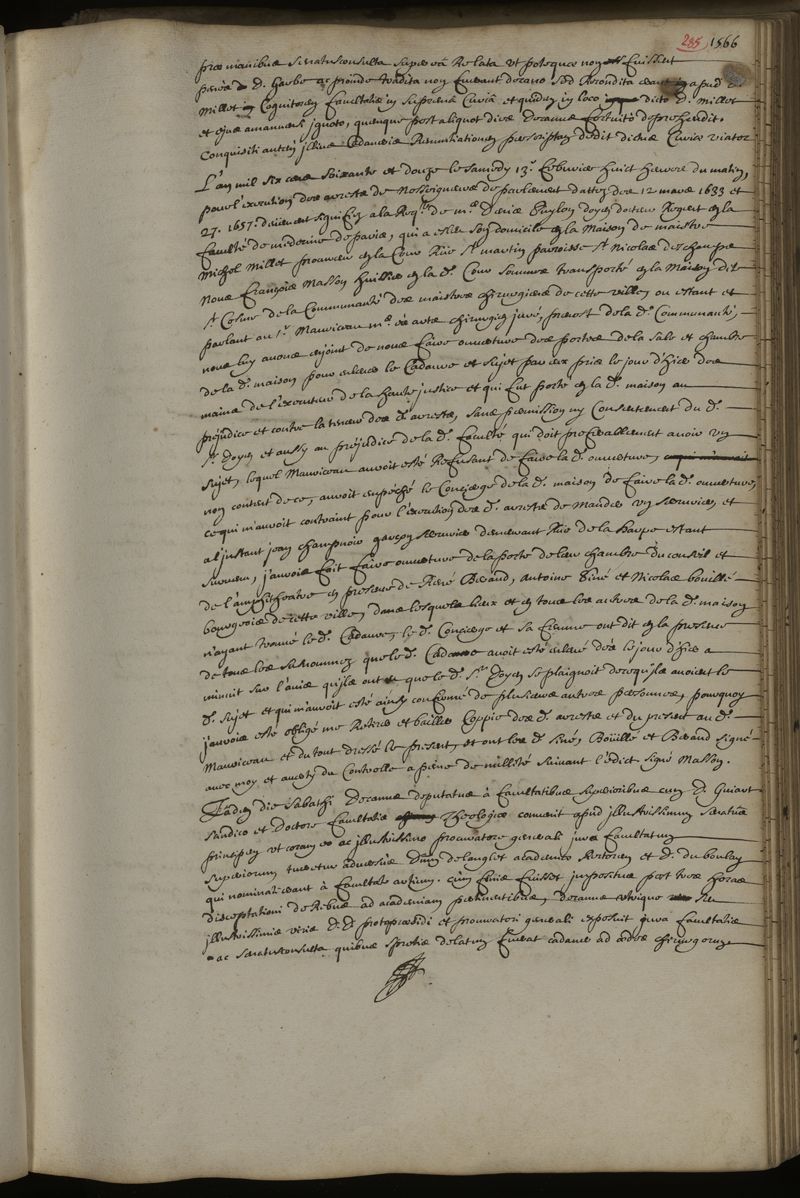 285 1566
præ manibus senatusconsulta superea Relata ut poteque non fuissent
penes d. Garbe ac proinde tradita non fuerant decano sed Recondita erant apud d.
Millet Cognitorem facultatis in suprema Curia et quidem in loco dicto d. Millet
et ejus amanuensi ignoto, quemque post aliquot dies decanus fortuitò deprehendit.
Conquisiti autem illius Cadaveris Renuntiationem perscriptam dedit dictus Curiæ viator
L'an mil six cens soixante et douze le samedy 13.e febvrier huict heures du matin,
pour l'execution des arrests de Nosseigneurs de parlement dattez des 12 mars 1633 et
27. 1657. deüement signifiez a la Req.te de m.e Denis Puylon doyen docteur Regent en la
faculté de medecine de paris, qui a esleu son domicile en la Maison de maistre
Michel Millet procureur en la Cour Rüe S.t martin parroisse S.t Nicolas des champs
Nous François Masson huissier en la d.e Cour sommes transporté en la Maison dite
S.t Cosme de la Communauté des maistres chirurgiens de cette ville, ou estant et
parlant au S.r Mauriceau m.e es arts chirurgien juré, prevost de la d.e Communauté,
nous luy avons enjoint de nous faire ouverture des portes de la sale et chambre
de la d.e maison pour enlever le Cadavre et sujet par eux pris le jour d'hier des
mains de l'executeur de la haute justice et qui fut porté en la d.e maison au
préjudice et contre la teneur des d.s arrests, sans permission ny Consentement du d.
S.r Doyen et aussy au préjudice de la d.e faculté qui doit preferablement avoir un
sujet, lequel Mauriceau auroit esté Refusant de faire la d.e ouverture,
non content de ce, auroit empesché le Concierge de la d.e maison de faire la d.e ouverture,
ce qui m'auroit contraint pour l'execution des d.s arrests de Mander un serrurier, et
a l'instant jean champnoir garçon serrurier demeurant Rüe de la harpe estant
survenu, j'aurois fait faire ouverture de la porte de leur chambre du conseil et
de l'amphitheatre en presence de René Beraud, Antoine Siné et Nicolas bouillé
bourgeois de cette ville, dans lesquels lieux et en tous les autres de la d.e maison
n'ayant trouvé le d. Cadavre, le d. Concierge et sa femme ont dit en la presence
de tous les susnommez que le d. Cadavre auroit esté enlevé dès le jour d'hier a
minuit sur l'avis qu'ils ont eu que le d. S.r Doyen se plaignoit de ce qu'ils avoient le
d. sujet et qui m'auroit esté ainsy confirmé de plusieurs autres personnes, pourquoy
j'aurois esté obligé me Retirer et bailler Coppie des d.s arrests et du present au d.
Mauriceau et du tout dressé le present, et ont les d.s siné, Boüillé et Beraud signé
avec moy et averty du Controlle a peine de nullité suivant l'édict. signé Masson.
Eadem die sabathi decanus deputatus à facultatibus superioribus cum d. Guiart
sindico et doctore facultatis Theologiæ convenit apud illustrissimum senatus
principem ut coram eo ac illustrissimo procuratore generali jura facultatum
superiorum tueretur adversus Dum. delanglet academiæ Rectorem et d. du boulay
qui nominati erant à facultate artium. cum finis fuisset impositus post tres horas
disceptationi de Rebus ad academiam pertinentibus, decanus utrique
illustrissimis viris d.d. protopræsidi et procuratori generali exposuit jura facultatis
ac senatusconsulta quibus spretis delatum fuerat cadaver ad ædes chirurgorum